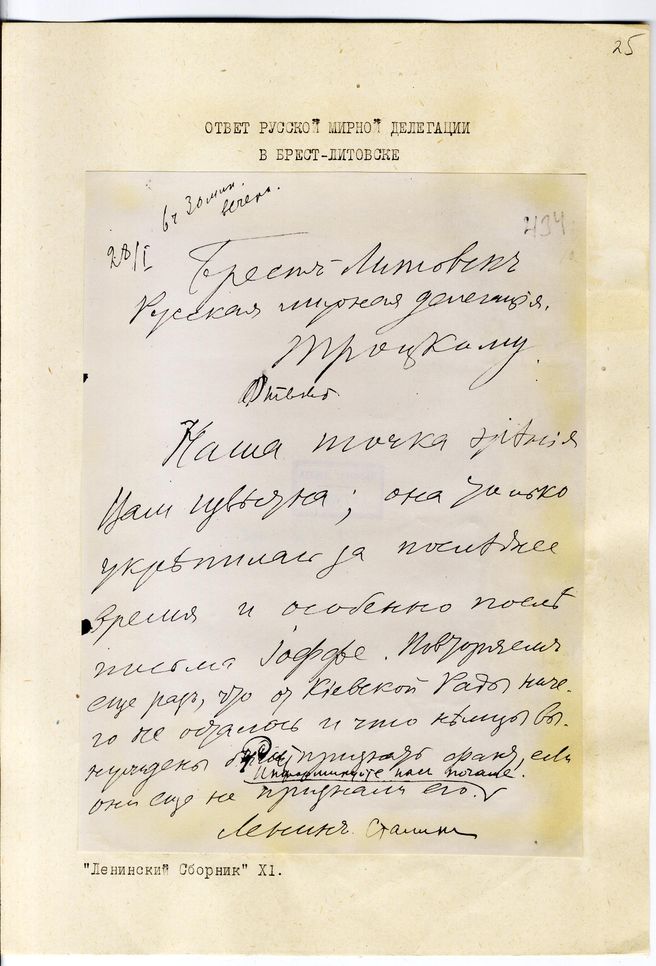 25
ОТВЕТ РУССКОЙ МИРНОЙ ДЕЛЕГАЦИИ
В БРЕСТ-ЛИТОВСКЕ
6 ч 30 мин.
вечера.
434
28/I
Брестъ-Литовскъ
Русская мирная делегація.
Троцкому
Отвѣтъ
Наша точка зрѣнія
Вам извѣстна; она только
укрѣпилась за послѣднее
время и особенно послѣ
письма Іоффе. Повторяем
еще разъ, что от Кіевской Рады ниче-
го не осталось и что нѣмцы вы-
нуждены будут признать факт, если
Информируйте нас почаще.
они еще не признали его.
Ленинъ. Сталин
"Ленинский Сборник" XI.